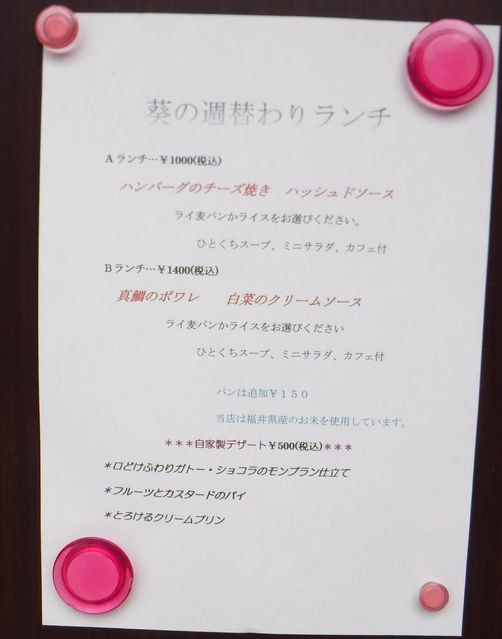 葵の週替わりランチ
Aランチ…￥1000(税込)
ハンバーグのチーズ焼き　ハッシュドソース
ライ麦パンかライスをお選びください。
ひとくちスープ、ミニサラダ、カフェ付
Bランチ…￥1400(税込)
真鯛のポワレ　白菜のクリームソース
ライ麦パンかライスをお選びください
ひとくちスープ、ミニサラダ、カフェ付
パンは追加￥１５０
当店は福井県産のお米を使用しています。
＊＊＊自家製デザート￥500(税込)＊＊＊
＊口どけふわりガトー・ショコラのモンブラン仕立て
＊フルーツとカスタードのパイ
＊とろけるクリームプリン